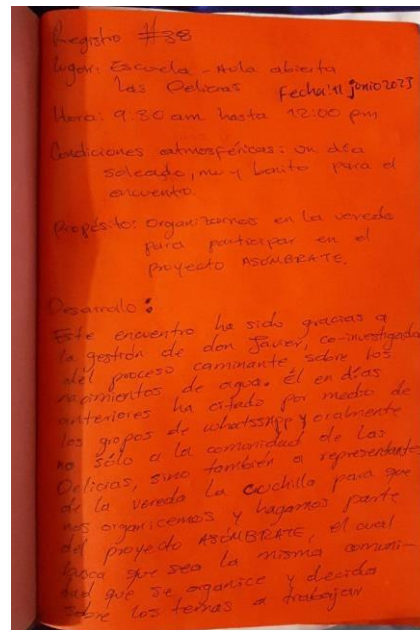 Registro #38
Lugar: Escuela - Aula abierta
Las Delicias Fecha: 11 junio 2023
Hora: 9:30 am hasta 12:00 pm
Condiciones atmosféricas: un día
soleado, muy bonito para el
encuentro.
Propósito: organizarnos en la vereda
para participar en el
proyecto ASÚMBRATE.
Desarrollo:
Este encuentro ha sido gracias a
la gestión de don Javier, co-investigador
del proceso caminante sobre los
nacimientos de agua. Él en días
anteriores ha citado por medio de
los grupos de whatssApp y oralmente
no sólo a la comunidad de Las
Delicias, sino también a representantes
de la vereda La cuchilla para que
nos organicemos y hagamos parte
del proyecto ASÚMBRATE, el cual
busca que sea la misma comuni-
dad que se organice y decida
sobre los temas a trabajar